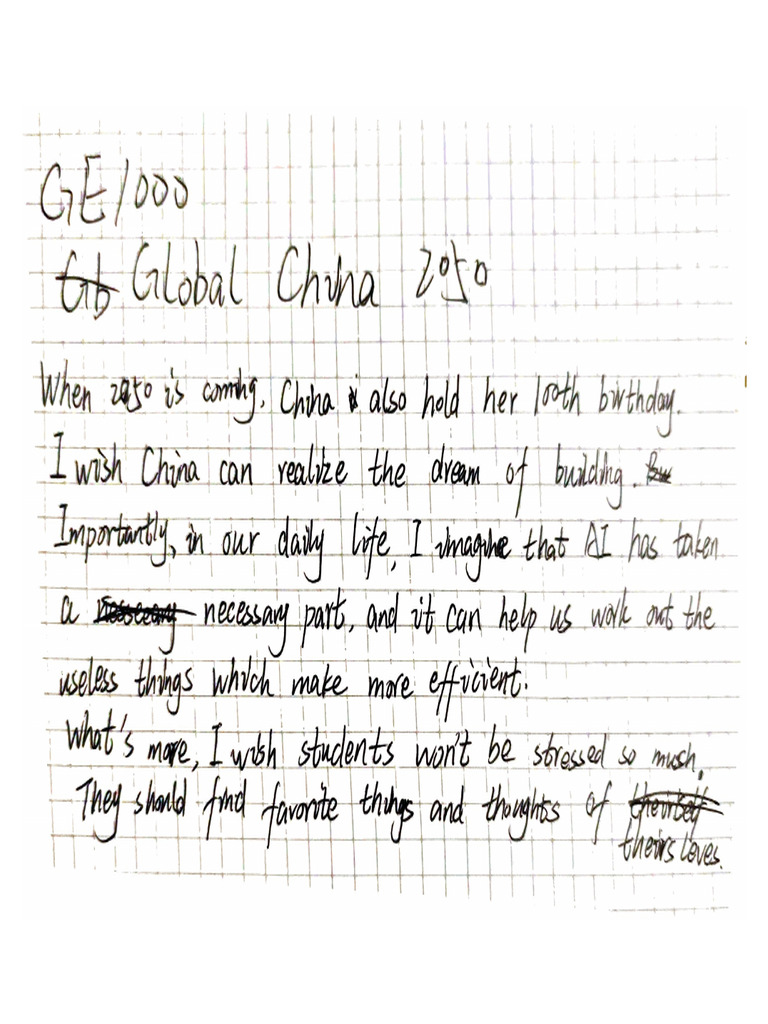 GE1000
Global China 2050
When 2050 is coming, China also hold her 100th birthday.
I wish China can realize the dream of building.
Importantly, in our daily life, I imagine that AI has taken
a necessary part, and it can help us work out the
useless things which make more efficient.
What's more, I wish students won't be stressed so much.
They should find favorite things and thoughts of
theirsloves.